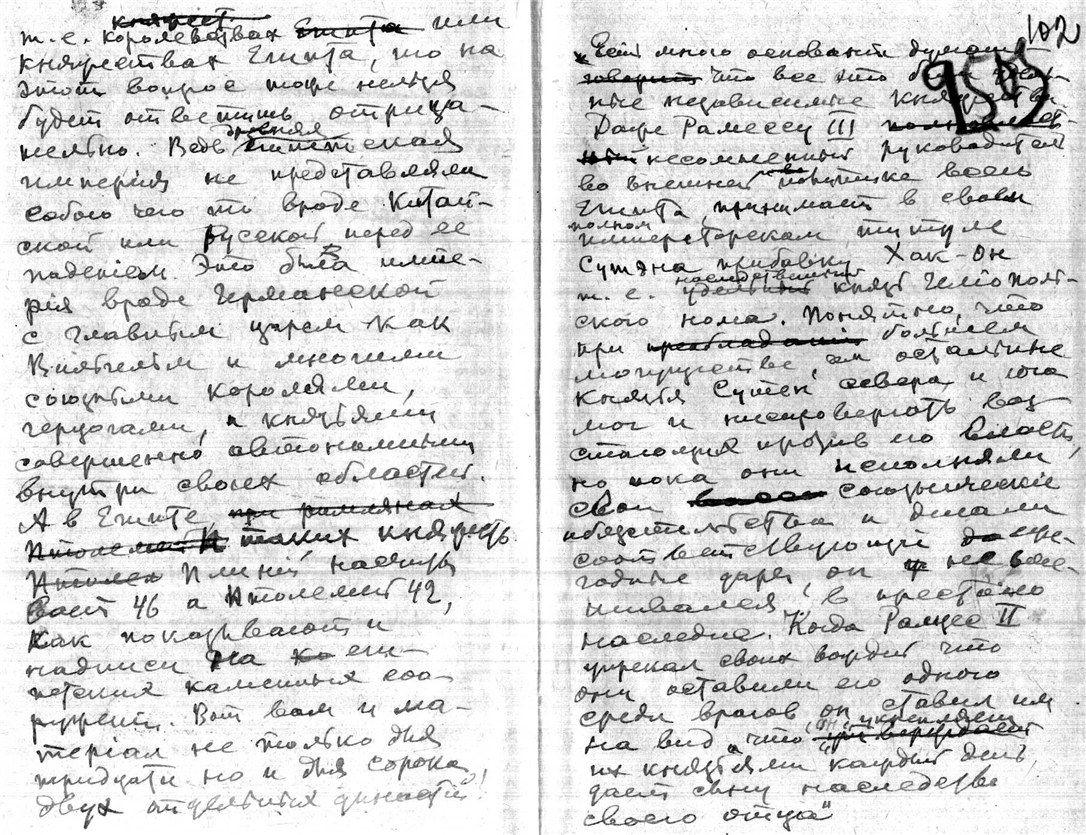 т.е. королевствах или
княжествах Египта, то на
этот вопрос тоже нельзя
будет ответить отрица-
тельно. Ведь древняя египетская
империя не представляла
собою что то вроде Китай-
ской или Русской перед ее
падением. Это была импе-
рія вроде Германской
с главным царем как
и многими
союзными королями,
герцогами, и князьями
совершенно автономными
внутри своих областей.
А в Египте, при римлянах
таких княжеств
Плиний насчиты
вает 46 а Птолемей 42,
как показывают и
надписи на еги-
петских каменных соо-
ружен. Вот вам и ма-
теріал не только для
тридцати но и для сорока
двух отдельных династий!
102
955
"Есть много оснований думать
что все это были
ные независимые княжества.
Даже Рамессу III
несомненный руководитель
во внешней политике всего
Египта, принимает в своем
полном императорском титуле
Сутэна прибавку Хак-Он
т.е. наследственный князь Гелиополь-
ского нома. Понятно, что
при большем
могуществе, чем остальные
князья Сутен севера и юга
мог и ниспровергать воз
стающих против его власти,
но пока они исполняли
свои союзнические
обязательства и делали
соответствующие еже-
годные дары, он не вме-
шивался в престоло
наследие. Когда Рамзес II
упрекал своих вождей что
они оставили его одного
среди врагов он ставил им
на вид, что он, укрепляет
их князьями каждый день,
дает сыну наследство
своего отца"